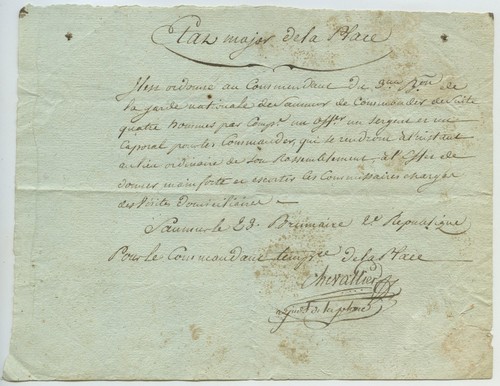 Etat major de la Place
Il en ordonné au Commandant du 3eme Bon de
la garde nationale de Saumur de Commander de suite
quatre hommes par Compie un Offer un sergent et un
Caporal pour les Commander, qui se rendront à l'instant
au lieu ordinaire de Son Rassemblement, à l'Effet de
donner main forte et escorter les Commissaires chargés
des Visites Domiciliaires
Saumur le 23 Brumaire 2e Republique
Pour le Commandant temp.re de la Place
Chevallier
adjudt de la place